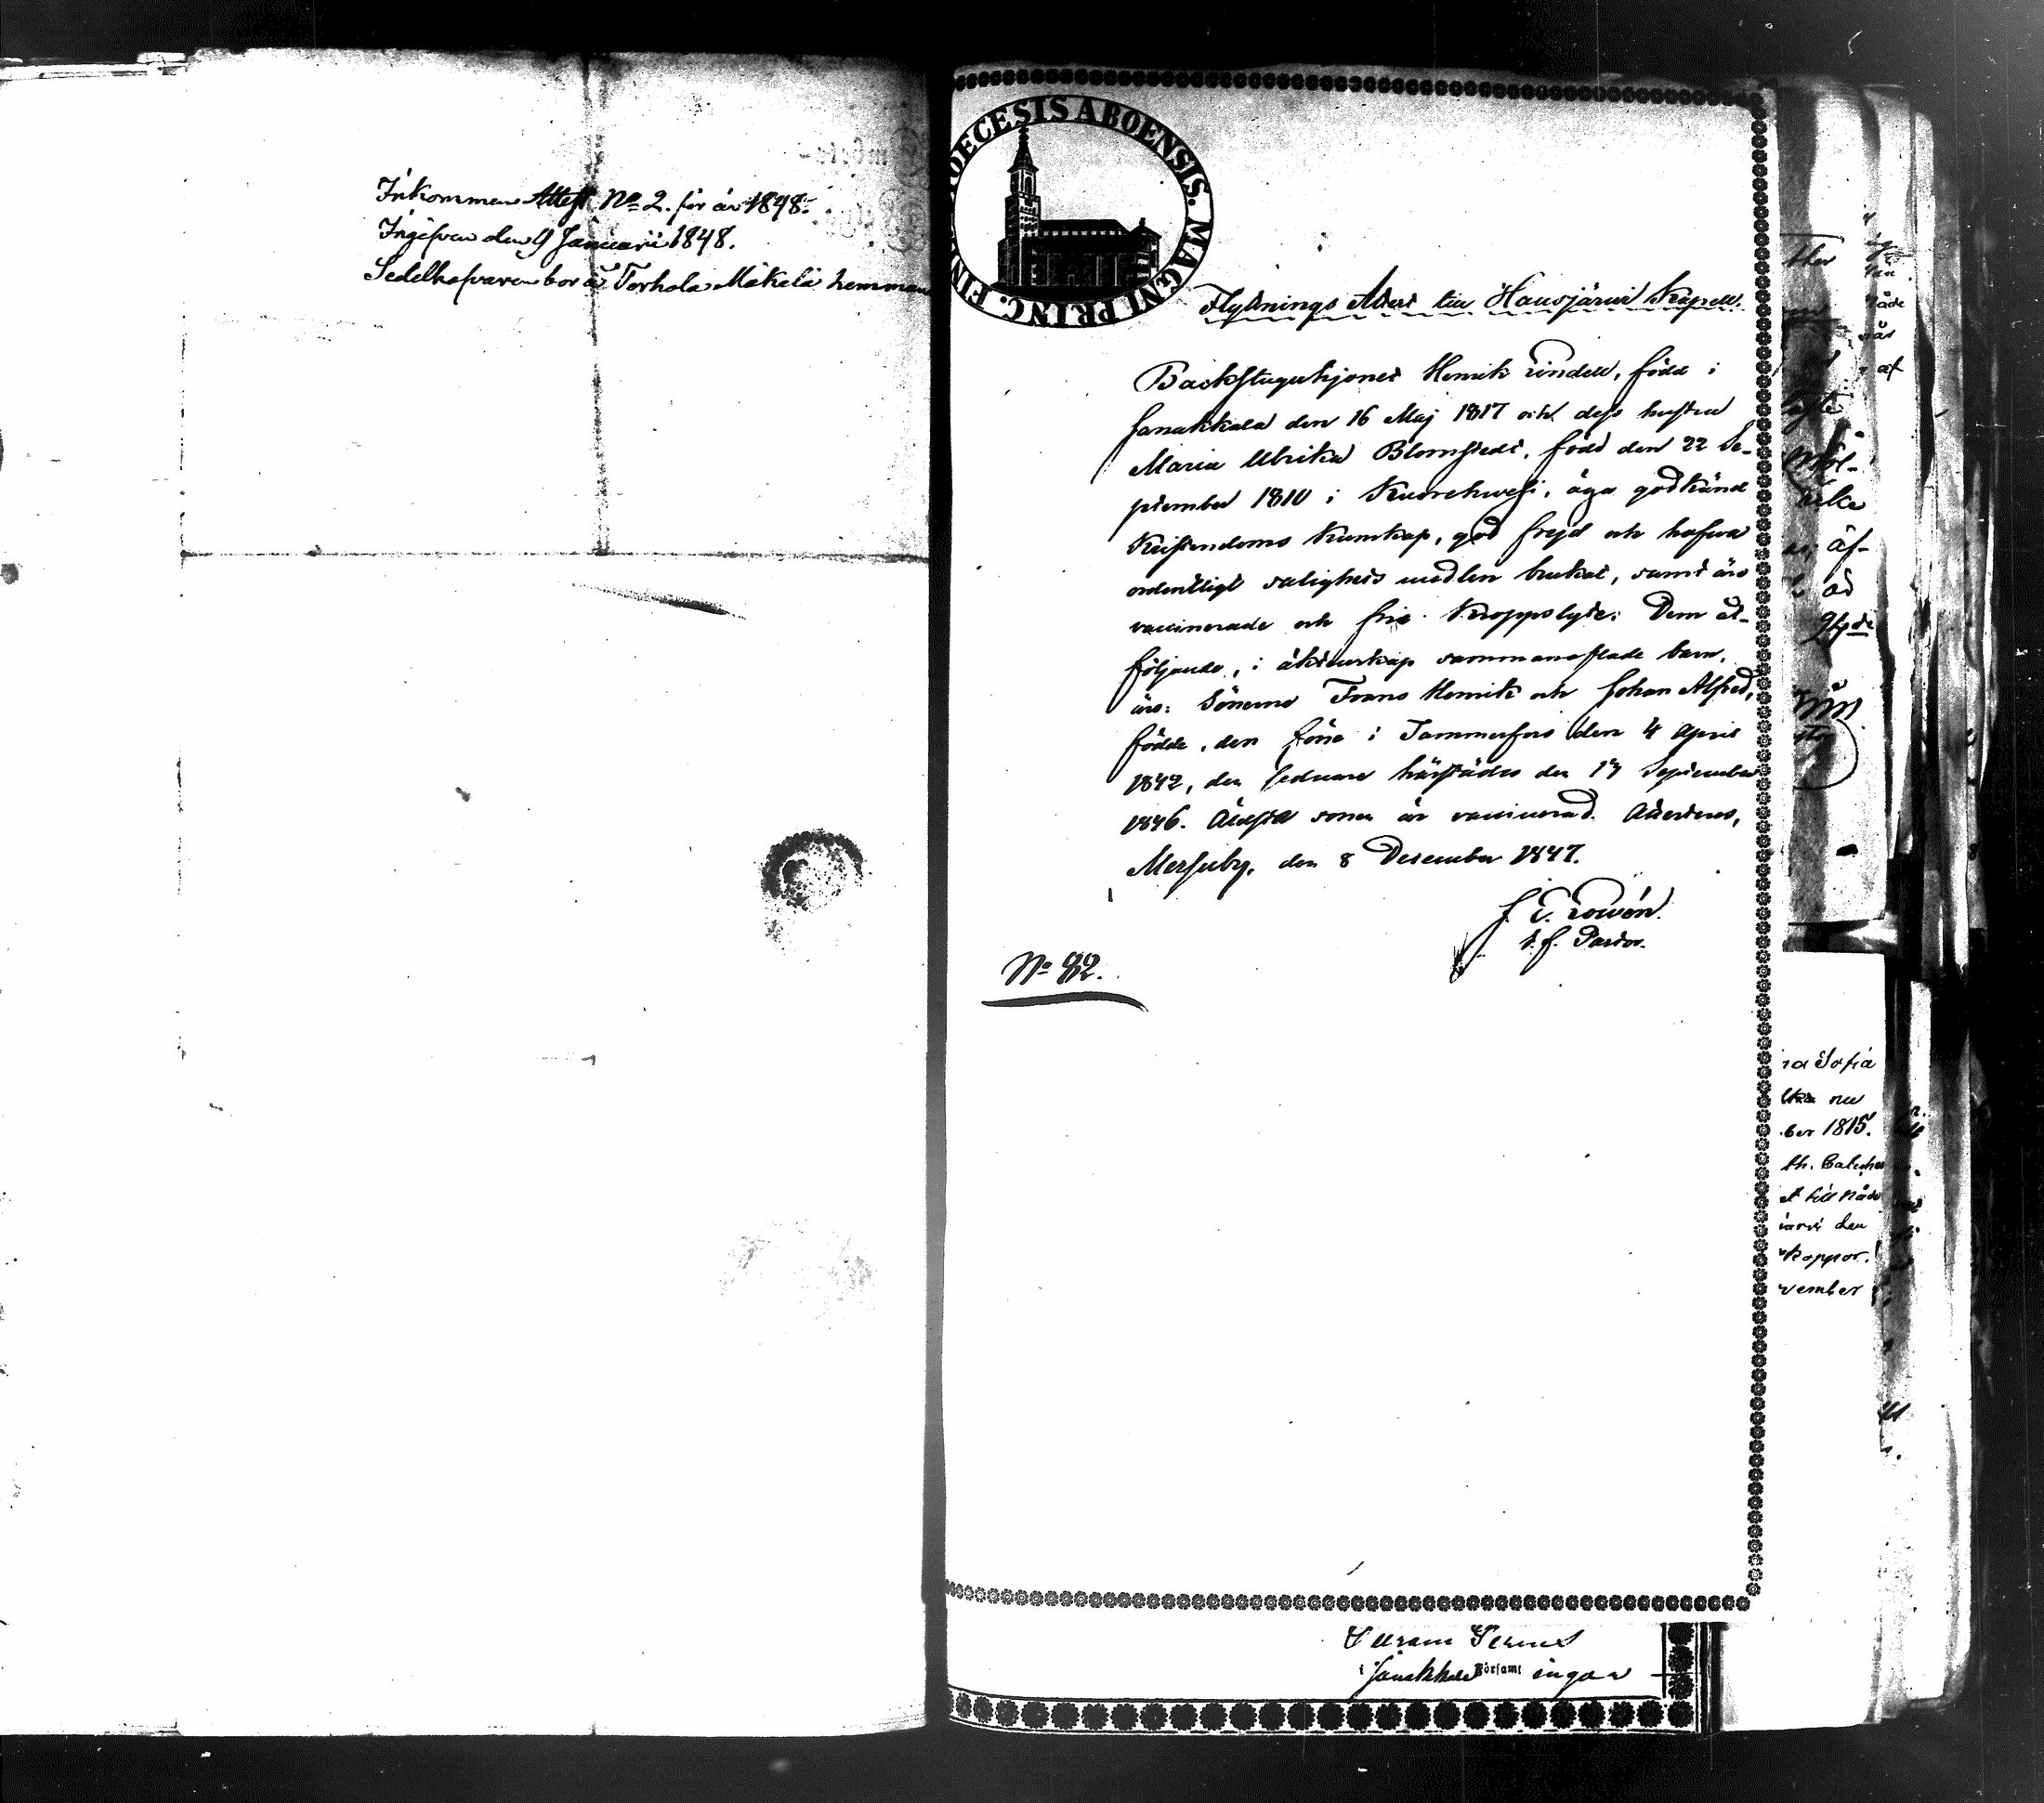 Inkommen Attest No 2. för år 1848.
Ingifven den 9 Januarii 1848.
Sedelhafvaren bor å Torhola Mäkelä hemman
DIOECESIS ABOENSIS. MAGNI PRINC. FIN
Flyttnings Attest till Hausjärvi Kapell.
Backstuguhjonet Henrik Lindell, född i
Janakkala den 16 Maj 1817 och dess hustru
Maria Ulrika Blomstedt, född den 22 Se-
ptember 1810 i Kuorehwesi, äga godkänd
Kristendoms kunskap, god frejd och hafwa
ordentligt salighets medlen brukat, samt äro
vaccinerade och fria Kroppslyte: Dem åt-
följande, i äktenskap sammanaflade barn,
äro: Sönerne Frans Henrik och Johan Alfred,
födde, den förre i Tammerfors den 4 April
1842, den sednare härstädes den 17 September
1846. Äldsta sonen är vaccinerad. Attesteras,
Messuby, den 8 December 1847.
J. E. Lowén.
t. f. Pastor.
No 82.
Janakkala Församl ingar
na Sofia
nu
ber 1815.
th. Catches
et till Nåde
järvi den
Koppor.
vember